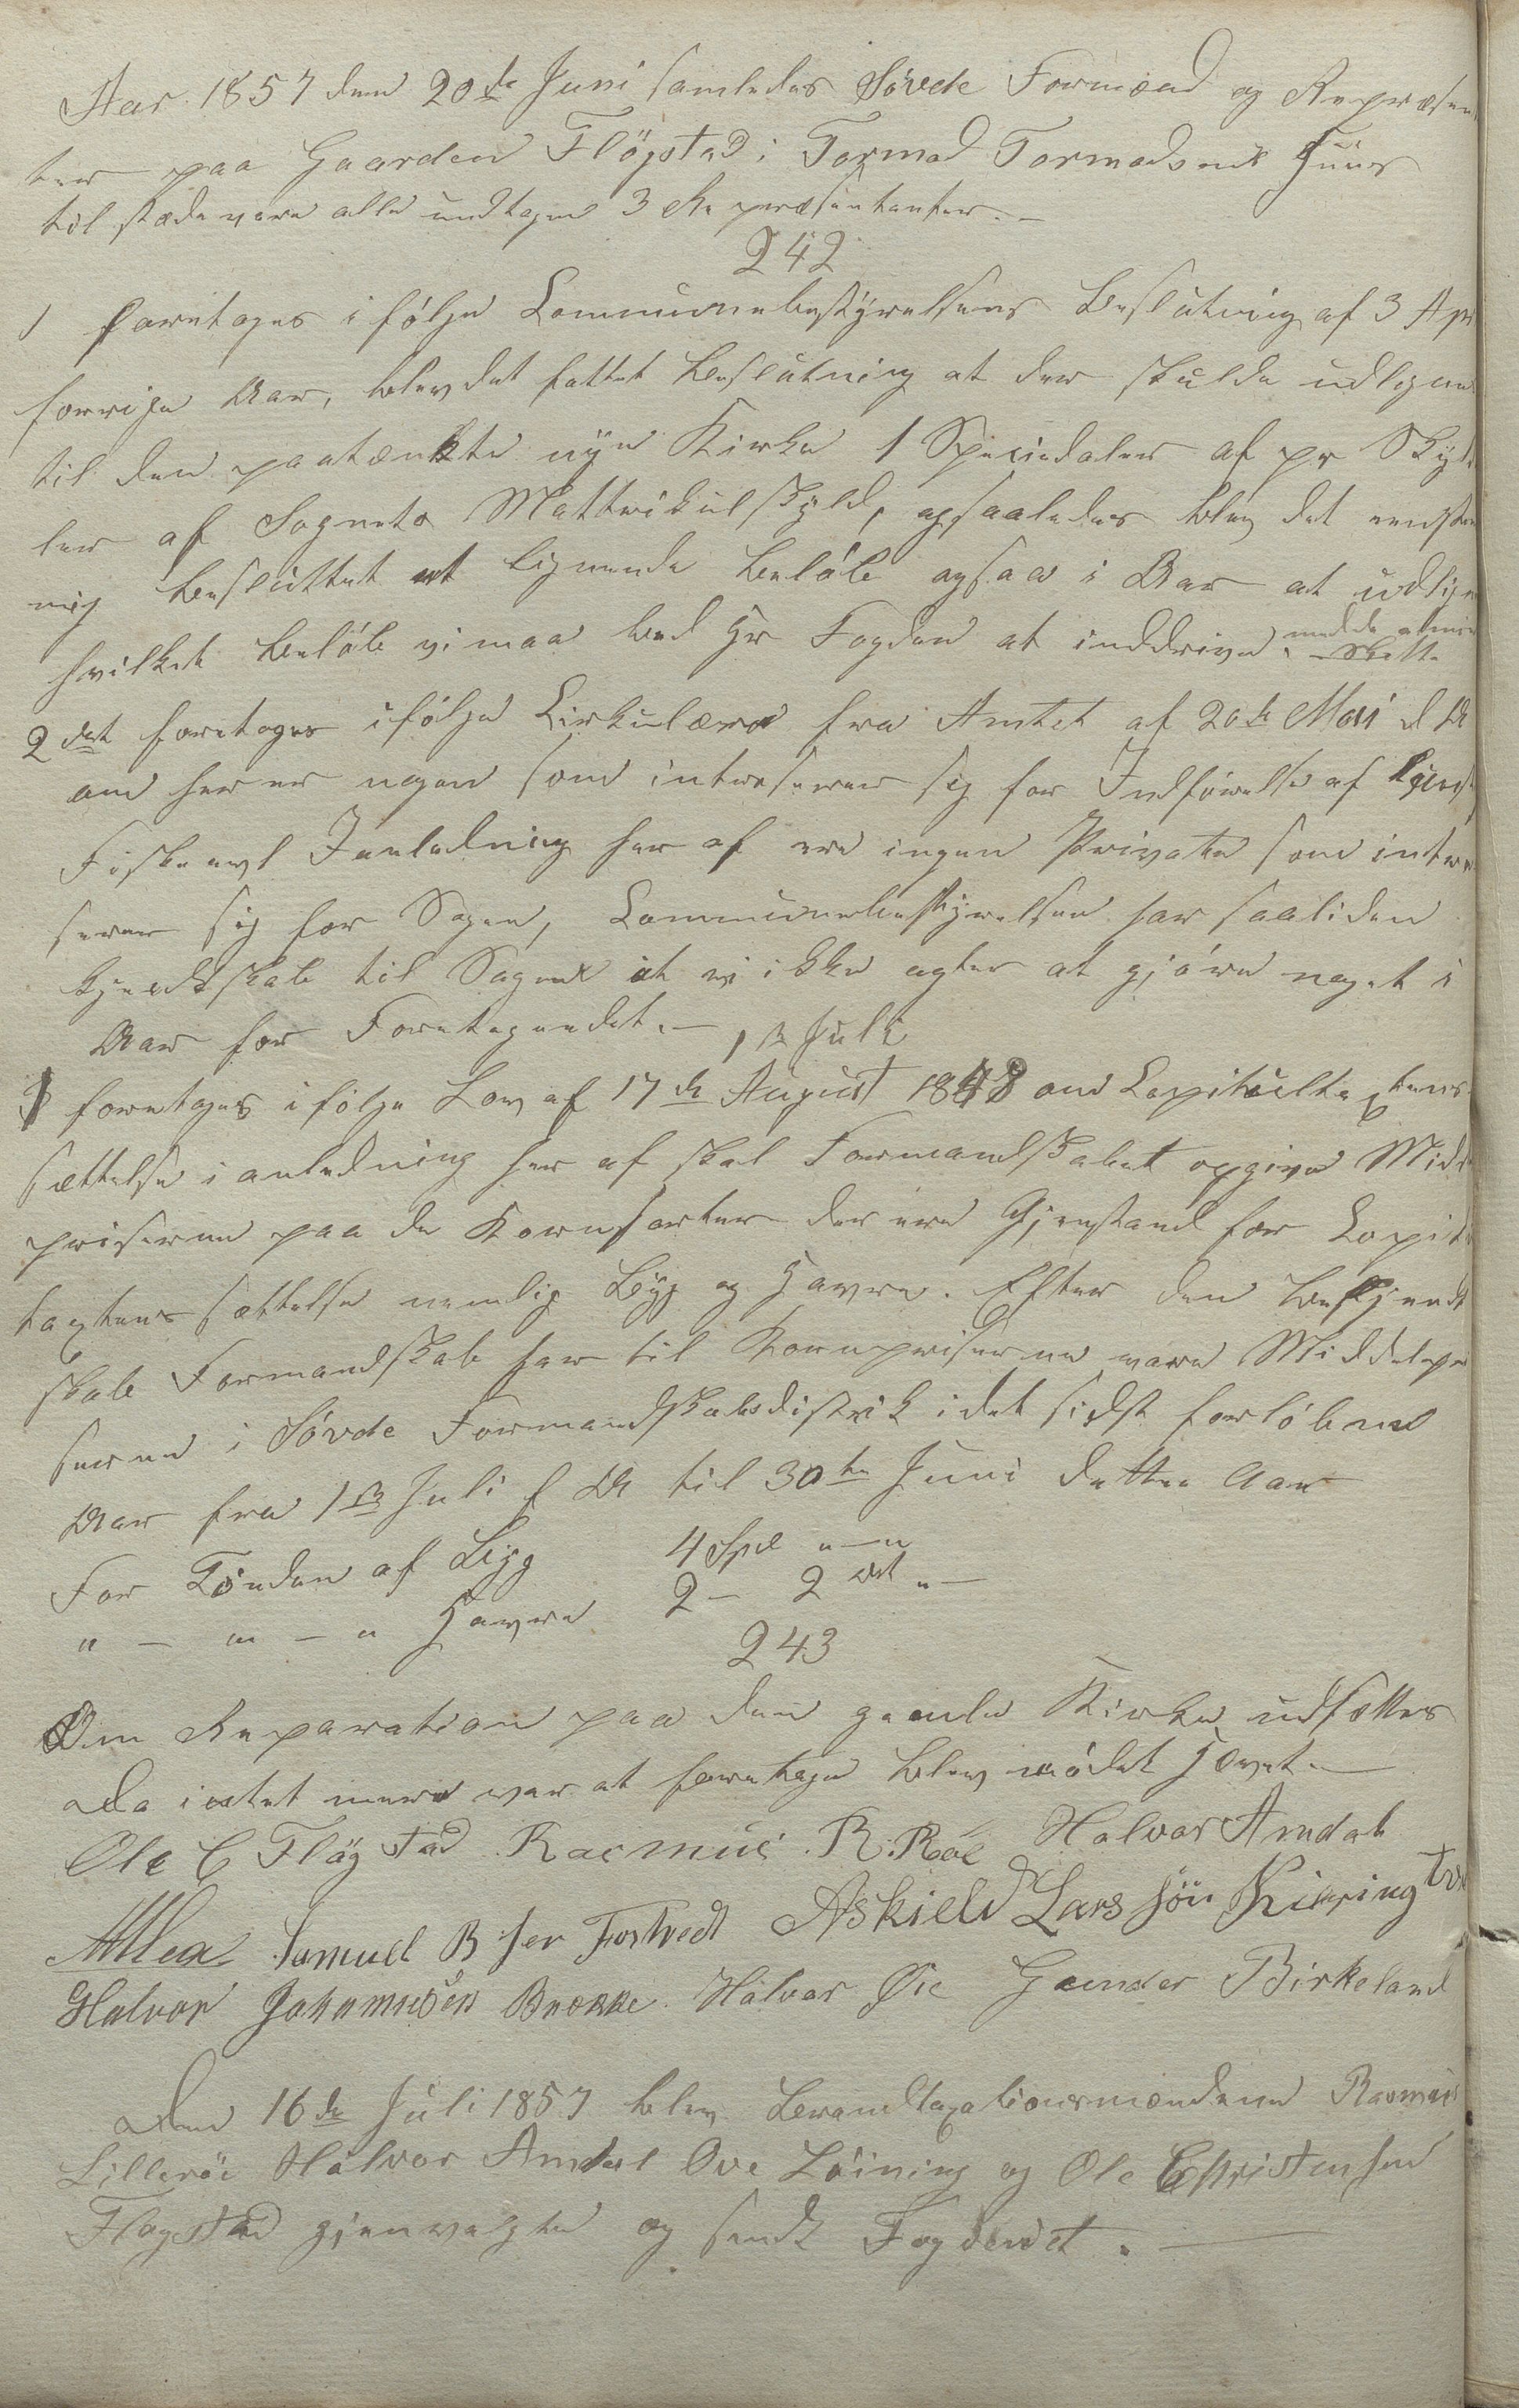 Aar 1857 den 20de Juni samledes Søvde Formænd og Repræsen
ter paa Gaarden Fløgstad i Tormod Tormodsens Huus
til stæde vare alle undtagen 3 Repræsentanter. —
242
1 foretoges ifølge Communebestyrelsens Beslutning af 3 Apr
forrige Aar, blev det fattet Beslutning at der skulde udlignes
til den paatænkte nye Kirke 1 Speciedaler af pr Skyld
ler af Sognets Mattrikulskyld, ogsaaledes blev det eenstem
mig besluttet at lignende Beløb ogsaa i Aar at udligne
hvilket Beløb vi maa bed Hr Fogden at inddrive. med de almin
Skatte
2det foretoges ifølge Cirkulære fra Amtet af 20de Mai d A
om her er nogen som intereserer sig for Indførelse af kunst
Fiskeavl I anledning her af ere ingen Private som intere
serer sig for Sagen, Communebestyrelsen har saaliden
kjendskab til Sagen at vi ikke agter at gjøre noget i
Aar for Foretagendet. —
1ste Juli
3 foretoges ifølge Lov af 17de August 1848 om Capitulta xtens
sættelse i anledning her af skal Formandskabet opgive Midd
priserne paa de Kornsorter der ere Gjenstand for Capit
taxtens sættelse nemlig Byg og Havre. Efter den bekjendt
skab Formandskab har til Kornpriserne vare Middelpri
serne i Søvde Formandskabsdistrik i det sidst forløbne
Aar fra 1ste Juli f A til 30te Juni dette Aar
For Tønden af Byg 4 Spd " — "
" — " — " Havre 2 — 2 Ort " —
243
Om Reparation paa den gamle Kirke udsættes
Da intet mere var at foretage blev mødet hævet. —
Ole C Fløgstad Rasmus R. Røe Halvor Amdal
Samuel B sen Fostvedt Askield Larssøn Kiering
Halvor Johannesen Brække Halvor Øie Gunder Birkeland
Den 16de Juli 1857 blev Brandtaxationsmændene Rasmus
Lillerøe Halvor Amdal Ove Løining og Ole Christensen
Flogstad gjenvalgte og sendt Fogderiet. —